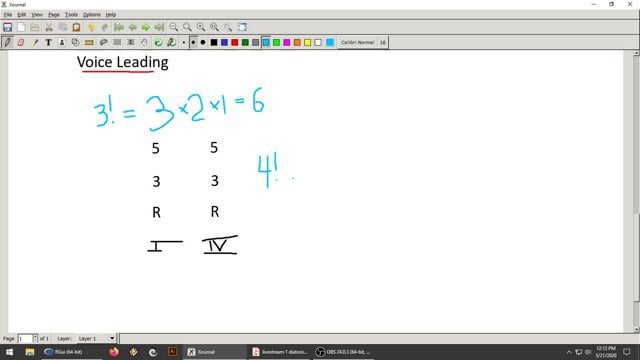 Xournal
File Edit View Journal Tools Options Help
Calibri Normal 16
Voice Leading
3! = 3 × 2 × 1 = 6
5 5
4!
3 3
R R
I IV
Page 1 of 1 Layer: Layer 1
RGui (64-bit) Xournal livestream 1 diatoni... OBS 24.0.3 (64-bit, ... 12:12 PM
5/21/2020